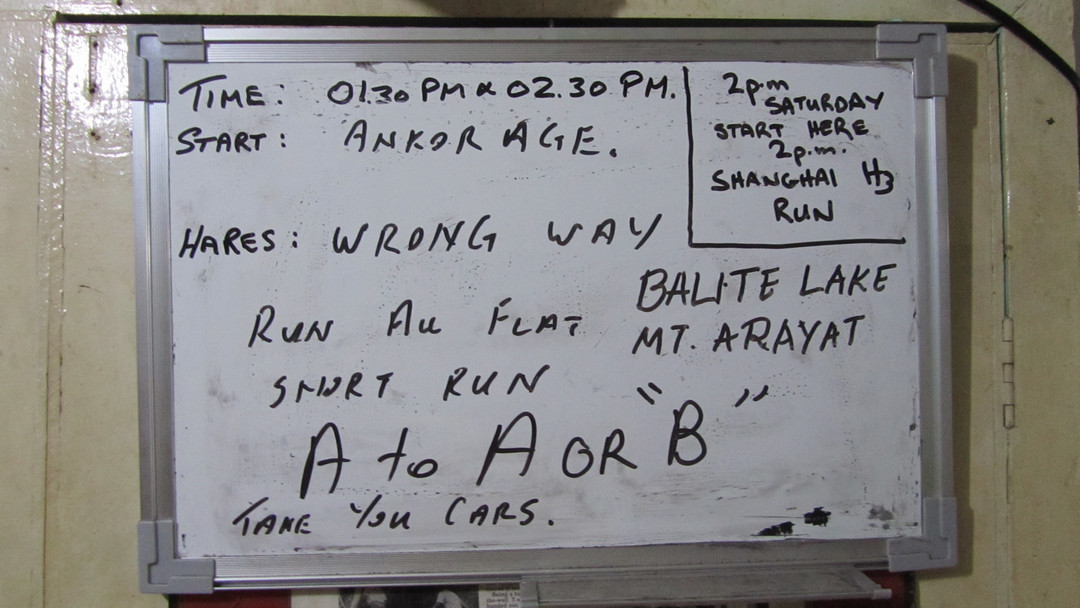 TIME: 01.30 PM & 02.30 PM.
START: ANKOR AGE.
2p.m
SATURDAY
START HERE
2p.m.
SHANGHAI H3
RUN
HARES: WRONG WAY
BALITE LAKE
MT. ARAYAT
RUN ALL FLAT
SHORT RUN
A to A OR "B"
TAKE YOU CARS.